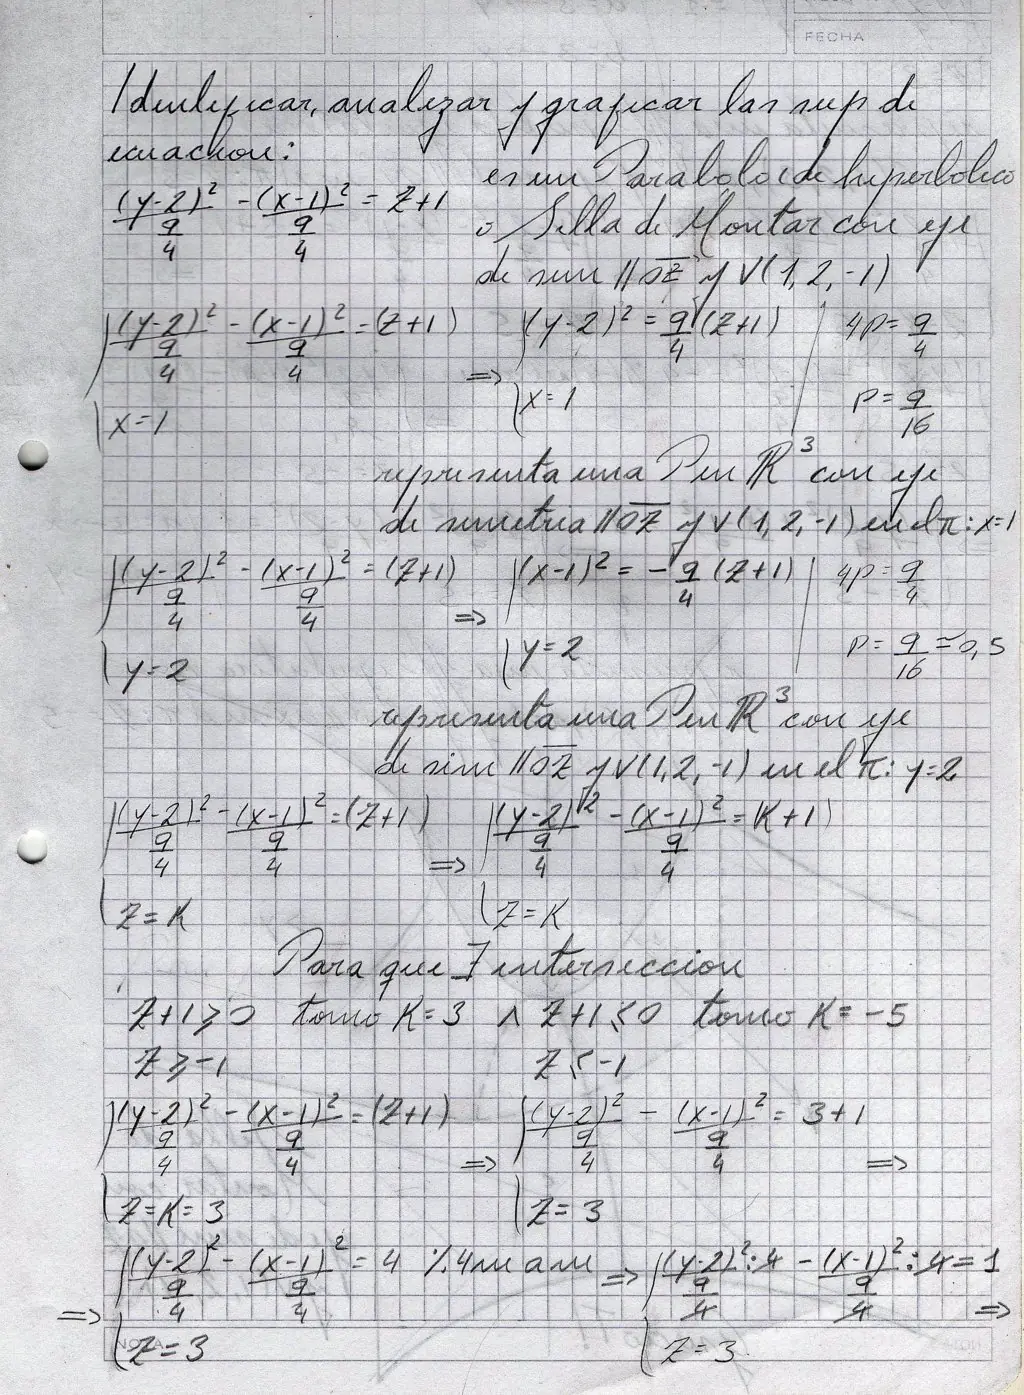 FECHA
Identificar, analizar y graficar las sup de
ecuación:
(y-2)²/(9/4) - (x-1)²/(9/4) = z+1
es un Paraboloide hiperbólico
ó Silla de Montar con eje
de sim // OZ y V(1, 2, -1)
{(y-2)²/(9/4) - (x-1)²/(9/4) = (z+1)
x=1
=> {(y-2)² = 9/4 (z+1)
x=1
4p = 9/4
p = 9/16
representa una P en R³ con eje
de simetria // OZ y V(1, 2, -1) en el π: x=1
{(y-2)²/(9/4) - (x-1)²/(9/4) = (z+1)
y=2
=> {(x-1)² = - 9/4 (z+1)
y=2
4p = 9/4
p = 9/16 ≃ 0,5
representa una P en R³ con eje
de sim // OZ y V(1, 2, -1) en el π: y=2
{(y-2)²/(9/4) - (x-1)²/(9/4) = (z+1)
z=K
=> {(y-2)²/(9/4) - (x-1)²/(9/4) = K+1)
z=K
Para que ∃ intersección
z+1 ≥ 0 tomo K=3 ∧ z+1 ≤ 0 tomo K= -5
z ≥ -1 z ≤ -1
{(y-2)²/(9/4) - (x-1)²/(9/4) = (z+1)
z=K=3
=> {(y-2)²/(9/4) - (x-1)²/(9/4) = 3+1
z=3 =>
=> {(y-2)²/(9/4) - (x-1)²/(9/4) = 4 %4 m a m
z=3
=> {(y-2)²/(9/4) :4 - (x-1)²/(9/4) :4 = 1
z=3 =>
NOTA